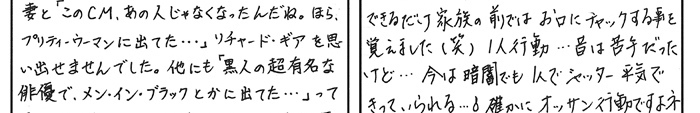 妻と「このCM、あの人じゃなくなったんだね。ほら、
プリティーウーマンに出てた…」リチャード・ギアを思
い出せませんでした。他にも「黒人の超有名な
俳優で、メン・イン・ブラックとかに出てた…」って
できるだけ家族の前ではお口にチャックする事を
覚えました(笑) 1人行動…昔は苦手だった
けど…今は暗闇でも1人でシャッター平気で
きって、いられる…。確かにオッサン行動ですよネ